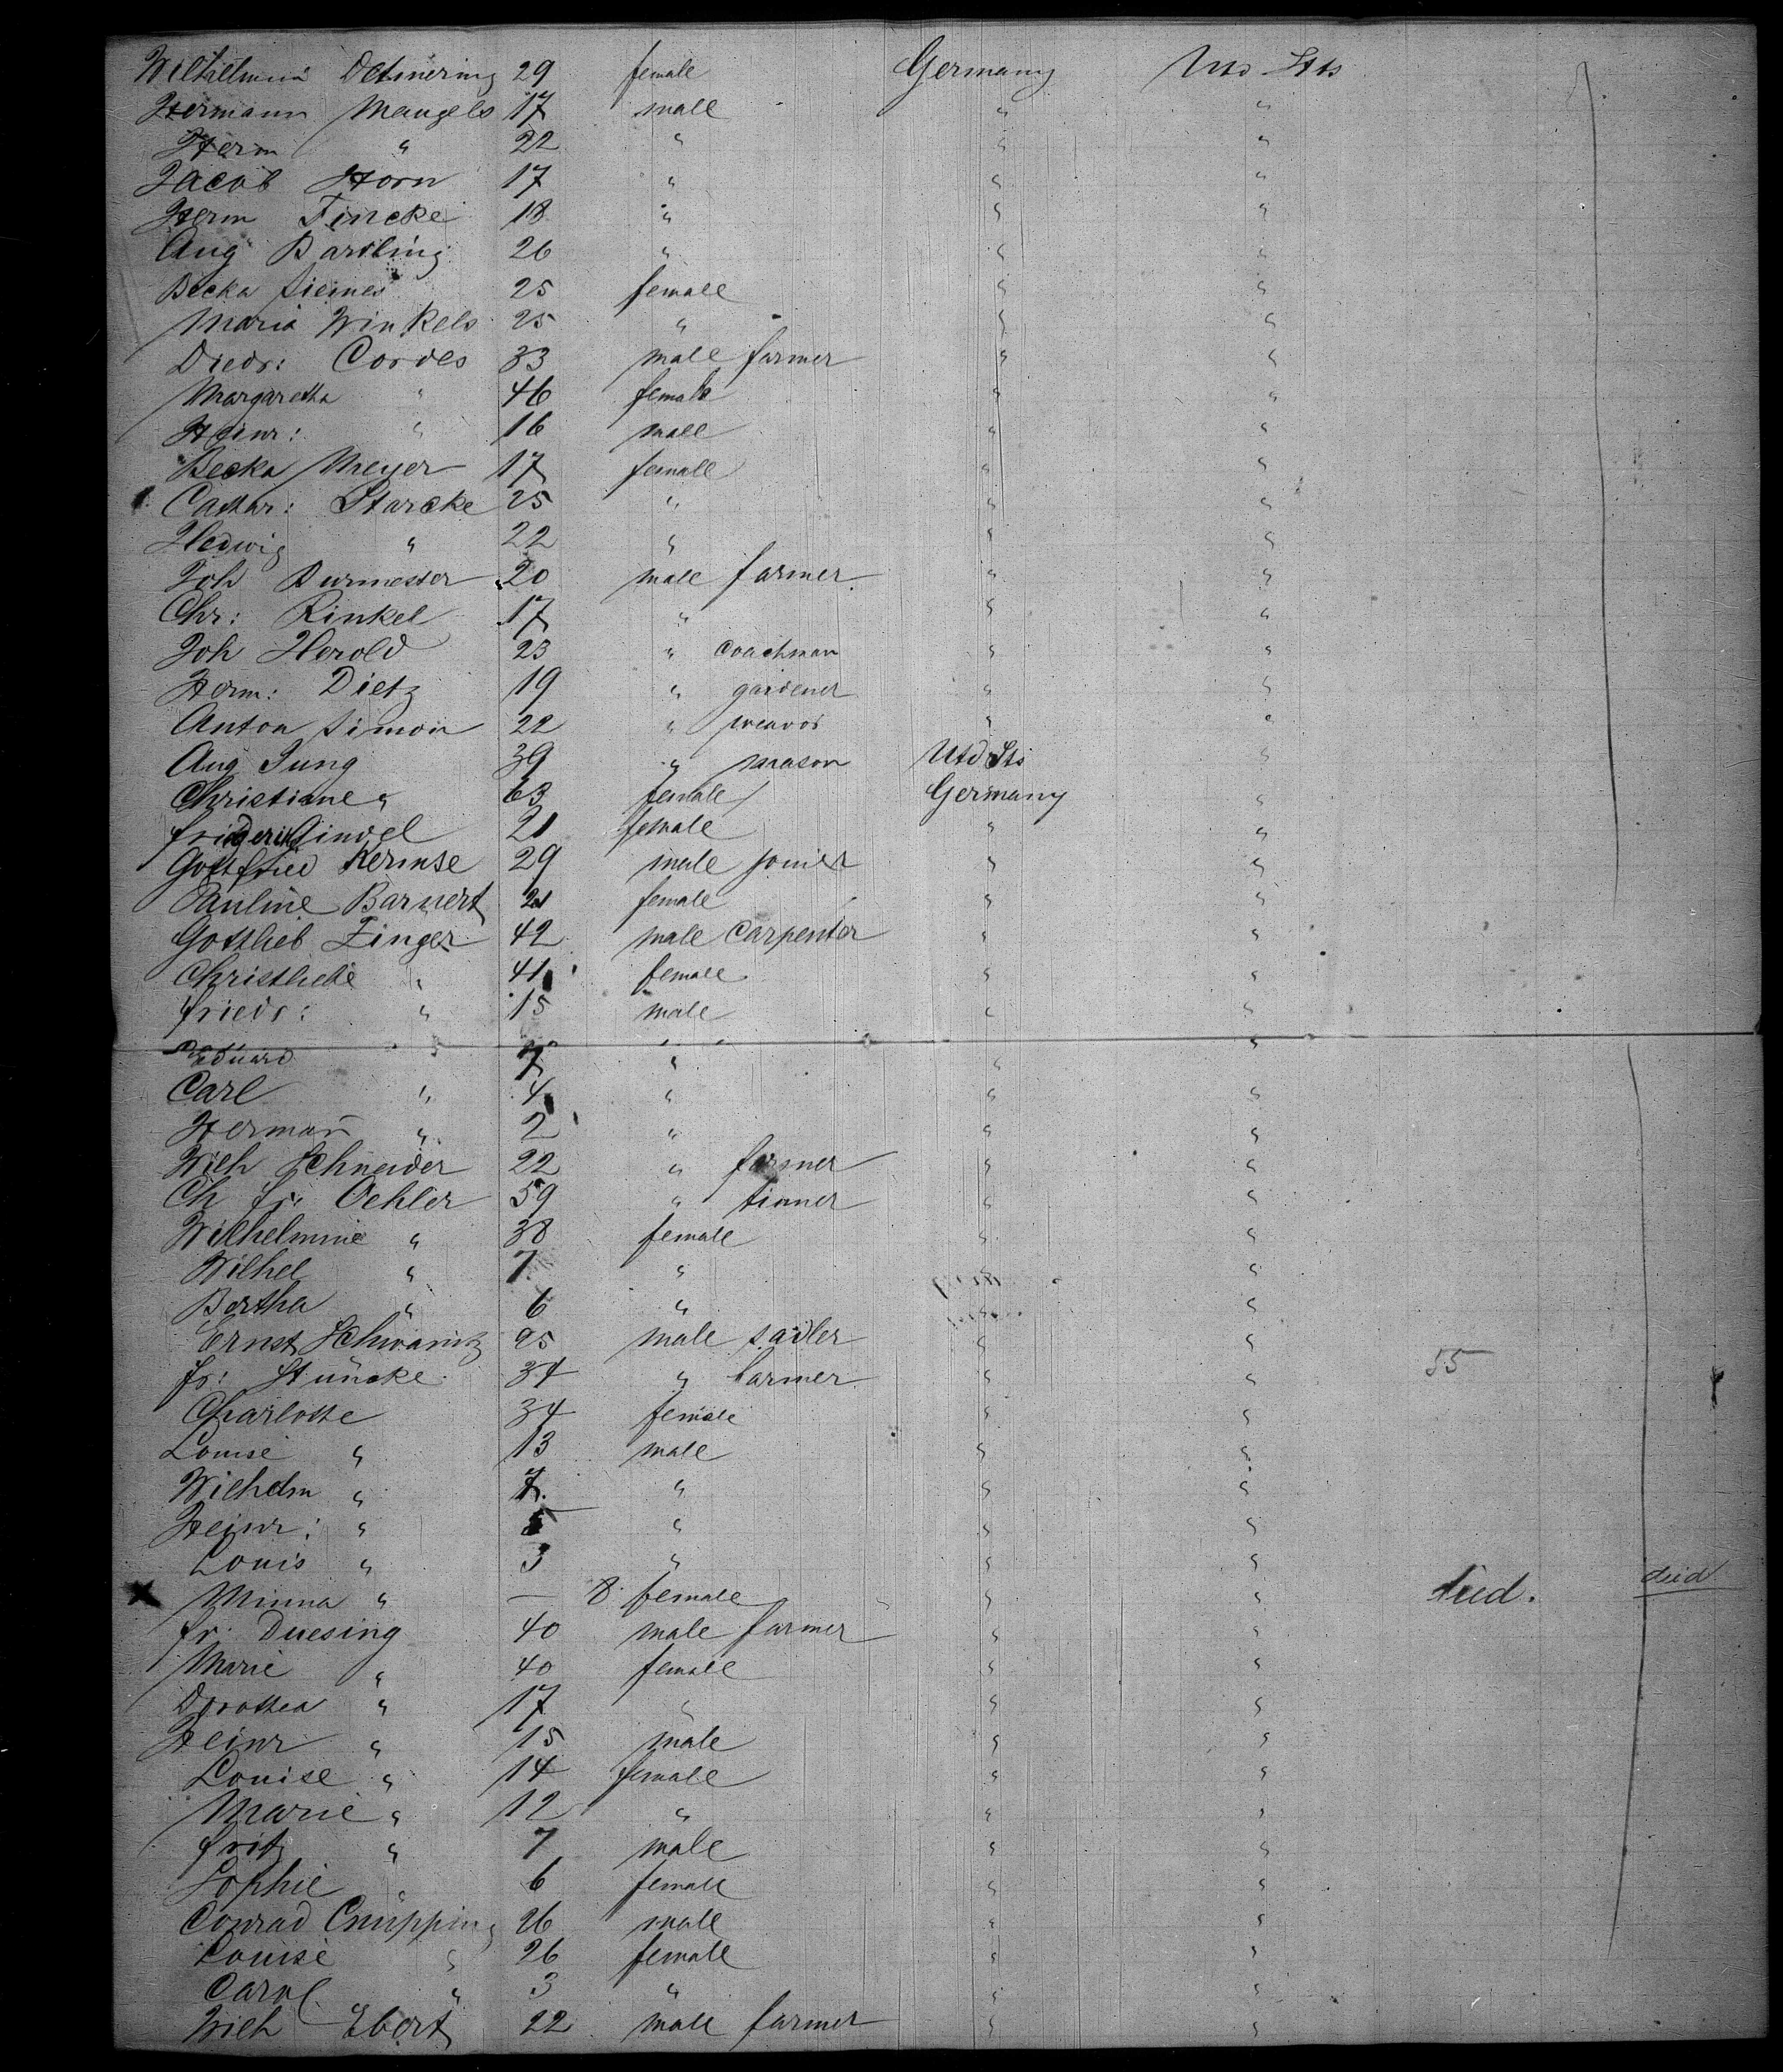 Wilhelmine Detmering 29 female Germany Utd Sts
Hermann Mangels 17 male " "
Herm " 22 " " "
Jacob Horn 17 " " "
Herm Fincke 18 " " "
Aug Bardling 26 " " "
Becka Siemes 25 female " "
Maria Winkels 25 " " "
Diedr: Cordes 33 male farmer " "
Margaretha " 46 female " "
Heinr: " 16 male " "
Becka Meyer 17 female " "
Cathar: Starcke 25 " " "
Hedwig " 22 " " "
Joh Burmester 20 male farmer " "
Chr: Rinkel 17 " " "
Joh Herold 23 " coachman " "
Herm: Dietz 19 " gardener " "
Anton Simon 22 " weavor " "
Aug Jung 39 " mason Utd Sts "
Christiane " 63 female Germany "
Friderike 21 female " "
Gottfried 29 male joiner " "
Pauline Barnert 21 female " "
Gottlieb Zinger 42 male carpenter " "
Christliebe " 41 female " "
Friedr: " 15 male " "
Eduard " 7 " " "
Carl " 4 " " "
Hermañ " 2 " " "
Wilh Schneider 22 " farmer " "
Ch Fr: Oehler 59 " tinner " "
Wilhelmine " 38 female " "
Wilhel " 7 " " "
Bertha " 6 " " "
Ernst Schwanitz 25 male sadler " "
Fr: Stüncke 34 " farmer " " 55
Charlotte 34 female " "
Louise " 13 male " "
Wilhelm " 7. " " "
Heinr: " 5 " " "
Louis " 3 " " "
X Minna " — 8. female " " died. died
Fr. Duesing 40 male farmer " "
Marie " 40 female " "
Dorothea " 17 " " "
Heinr " 15 male " "
Louise " 14 female " "
Marie " 12 " " "
Fritz " 7 male " "
Sophie " 6 female " "
Conrad Cnüpping 26 male " "
Louise " 26 female " "
Carol " 3 " " "
Wilh Ebert 22 male farmer " "